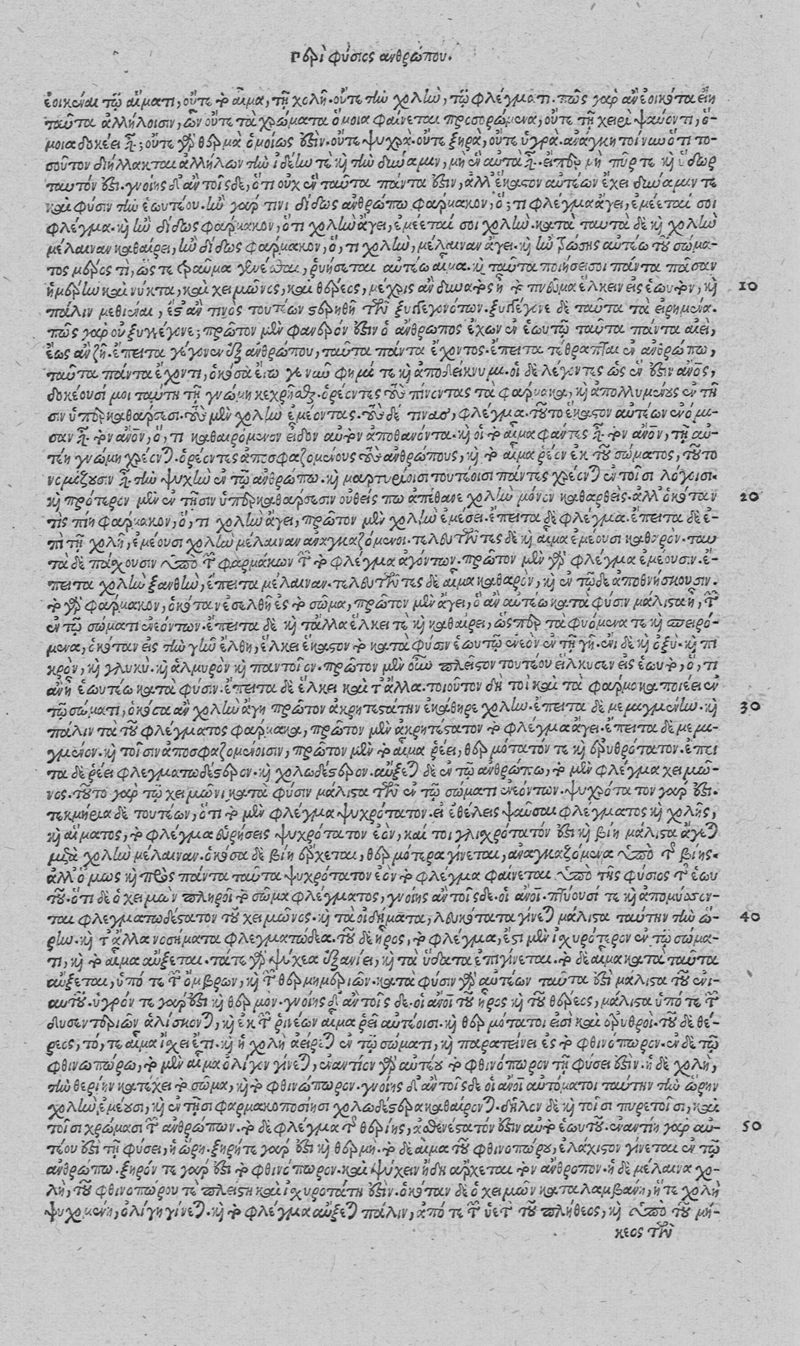 Περὶ φύσιος ἀνθρώπου.
ἐοικέναι τῷ αἵματι, οὔτε τὸ αἷμα, τῇ χολῇ. οὔτε τὴν χολὴν, τῷ φλέγματι. πῶς γὰρ ἂν ἐοικότα εἴη
ταῦτα ἀλλήλοισιν, ὧν οὔτε τὰ χρώματα ὅμοια φαίνεται προσορώμενα, οὔτε τῇ χειρὶ ψαύοντι, ὅ-
μοια δοκέει εἶναι; οὔτε γὰρ θερμὰ ὁμοίως ἐστὶν. οὔτε ψυχρὰ. οὔτε ξηρὰ, οὔτε ὑγρὰ. ἀνάγκη τοίνυν ὅτι το-
σοῦτον διήλλακται ἀλλήλων τὴν ἰδέην τε καὶ τὴν δύναμιν, μὴ ἓν αὐτὰ εἶναι. εἴπερ μὴ πῦρ τε καὶ ὕδωρ
ταυτόν ἐστι. γνοίης δ' ἂν τοῖσδε, ὅτι οὐχ ἓν ταῦτα πάντα ἐστὶν, ἀλλ' ἕκαστον αὐτέων ἔχει δύναμίν τε
καὶ φύσιν τὴν ἑωυτέου. ἢν γάρ τινι διδῷς ἀνθρώπῳ φάρμακον, ὅ, τι φλέγμα ἄγει, ἐμέεταί σοι
φλέγμα. καὶ ἢν διδῷς φάρμακον, ὅ τι χολὴν ἄγει, ἐμέεταί σοι χολὴν. κατὰ ταυτὰ δὲ καὶ χολὴν
μέλαιναν καθαίρει, ἢν διδῷς φάρμακον, ὅ, τι χολὴν, μέλαιναν ἄγει. καὶ ἢν τρώσῃς αὐτέῳ τοῦ σώμα-
τος μέρος τι, ὥστε τραῦμα γενέσθαι, ῥυήσεται αὐτέῳ αἷμα. καὶ ταῦτα ποιήσει σοι πάντα πᾶσαν
ἡμέρην καὶ νύκτα, καὶ χειμῶνος, καὶ θέρεος, μέχρις ἂν δυνατὸς ᾖ τὸ πνεῦμα ἕλκειν εἰς ἑωυτὸν, καὶ 10
πάλιν μεθιέναι, ἔστ' ἄν τινος τουτέων στερηθῇ τῶν ξυγγεγονότων. ξυγγέγονε δὲ ταῦτα τὰ εἰρημένα.
πῶς γὰρ οὐ ξυγγέγονε; πρῶτον μὲν φανερόν ἐστιν ὁ ἄνθρωπος ἔχων ἐν ἑωυτῷ ταῦτα πάντα αἰεὶ,
ἕως ἂν ζῇ. ἔπειτα γέγονεν ἐξ ἀνθρώπου, ταῦτα πάντα ἔχοντος. ἔπειτα τέθραπται ἐν ἀνθρώπῳ,
ταῦτα πάντα ἔχοντι, ὁκόσα ἐγὼ γε νῦν φημί τε καὶ ἀποδείκνυμι. οἱ δὲ λέγοντες ὡς ἕν ἐστιν ἄνθρωπος,
δοκέουσί μοι ταύτῃ τῇ γνώμῃ κεχρῆσθαι. ὁρέοντες τοὺς πίνοντας τὰ φάρμακα, καὶ ἀπολλυμένους ἐν τῇ-
σιν ὑπερκαθάρσεσι. τοὺς μὲν χολὴν ἐμέοντας. τοὺς δέ τινας, φλέγμα. τοῦτο ἕκαστον αὐτέων ἐνόμι-
σαν εἶναι τὸν ἄνθρωπον, ὅ, τι καθαιρόμενον εἶδον αὐτὸν ἀποθανόντα. καὶ οἱ τὸ αἷμα φάντες εἶναι τὸν ἄνθρωπον, τῇ αὐ-
τέῃ γνώμῃ χρέονται. ὁρέοντες ἀποσφαζομένους τοὺς ἀνθρώπους, καὶ τὸ αἷμα ῥέον ἐκ τοῦ σώματος, τοῦτο
νομίζουσιν εἶναι τὴν ψυχὴν ἐν τῷ ἀνθρώπῳ. καὶ μαρτυρίοισι τουτέοισι πάντες χρέονται ἐν τοῖσι λόγοισι.
καὶ πρότερον μὲν ἐν τῇσιν ὑπερκαθάρσεσιν οὐθείς πω ἀπέθανε χολὴν μόνον καθαρθείς. ἀλλ' ὁκόταν 20
τὶς πίῃ φάρμακον, ὅ, τι χολὴν ἄγει, πρῶτον μὲν χολὴν ἐμέσει. ἔπειτα δὲ φλέγμα. ἔπειτα δὲ ἐ-
πὶ τῇ χολῇ, ἐμέουσι χολὴν μέλαιναν ἀναγκαζόμενοι. τελευτῶντες δὲ καὶ αἷμα ἐμέουσι καθαρὸν. ταυ-
τὰ δὲ πάσχουσιν ὑπὸ τῶν φαρμάκων τῶν τὸ φλέγμα ἀγόντων. πρῶτον μὲν γὰρ φλέγμα ἐμέουσιν. ἔ-
πειτα χολὴν ξανθὴν, ἔπειτα μέλαιναν. τελευτῶντες δὲ αἷμα καθαρὸν, καὶ ἐν τῷδε ἀποθνήσκουσιν.
τὸ γὰρ φάρμακον, ὁκόταν ἐσέλθῃ ἐς τὸ σῶμα, πρῶτον μὲν ἄγει, ὃ ἂν αὐτέῳ κατὰ φύσιν μάλιστα ᾖ, τῶν
ἐν τῷ σώματι ἐνεόντων. ἔπειτα δὲ καὶ τἄλλα ἕλκει τε καὶ καθαίρει, ὥσπερ τὰ φυόμενα τε καὶ σπειρό-
μενα, ὁκόταν εἰς τὴν γῆν ἔλθῃ, ἕλκει ἕκαστον τὸ κατὰ φύσιν ἑωυτῷ ἐνεὸν ἐν τῇ γῇ. ἔνι δὲ καὶ ὀξὺ. καὶ πι
κρὸν, καὶ γλυκὺ. καὶ ἁλμυρὸν καὶ παντοῖον. πρῶτον μὲν οὖν πλεῖστον τουτέου εἵλκυσεν εἰς ἑωυτὸ, ὅ, τι
ἂν ᾖ ἑωυτέῳ κατὰ φύσιν. ἔπειτα δὲ ἕλκει καὶ τἄλλα. τοιοῦτον δή τοι καὶ τὰ φάρμακα ποιέει ἐν
τῷ σώματι, ὁκόσα ἂν χολὴν ἄγῃ πρῶτον ἀκρητεστάτην ἐκάθηρε χολὴν. ἔπειτα δὲ μεμιγμένην. καὶ 30
πάλιν τὰ τοῦ φλέγματος φάρμακα, πρῶτον μὲν ἀκρητέστατον τὸ φλέγμα ἄγει. ἔπειτα δὲ μεμι-
γμένον. καὶ τοῖσιν ἀποσφαζομένοισιν, πρῶτον μὲν τὸ αἷμα ῥέει, θερμότατόν τε καὶ ἐρυθρότατον. ἔπει
τα δὲ ῥέει φλεγματωδέστερον. καὶ χολωδέστερον. αὔξεται δὲ ἐν τῷ ἀνθρώπῳ, τὸ μὲν φλέγμα χειμῶ-
νος. τοῦτο γὰρ τῷ χειμῶνι κατὰ φύσιν μάλιστα τῶν ἐν τῷ σώματι ἐνεόντων. ψυχρότατον γάρ ἐστι.
τεκμήρια δὲ τουτέων, ὅτι τὸ μὲν φλέγμα ψυχρότατον. εἰ ἐθέλεις ψαῦσαι φλέγματος καὶ χολῆς,
καὶ αἵματος, τὸ φλέγμα εὑρήσεις ψυχρότατον ἐὸν, καί τοι γλισχρότατόν ἐστι καὶ βίῃ μάλιστα ἄγεται
μετὰ χολὴν μέλαιναν. ὁκόσα δὲ βίῃ ἔρχεται, θερμότερα γίνεται, ἀναγκαζόμενα ὑπὸ τῆς βίης.
ἀλλ' ὅμως καὶ πρὸς πάντα ταῦτα ψυχρότατον ἐὸν τὸ φλέγμα φαίνεται ὑπὸ τῆς φύσιος τῆς ἑωυ
τοῦ. ὅτι δὲ ὁ χειμὼν πληροῖ τὸ σῶμα φλέγματος, γνοίης ἂν τοῖσδε. οἱ ἄνθρωποι πτύουσί τε καὶ ἀπομύσσον-
ται φλεγματωδέστατον τοῦ χειμῶνος. καὶ τὰ οἰδήματα, λευκότατα γίνεται μάλιστα ταύτην τὴν ὥ- 40
ρην. καὶ τἄλλα νοσήματα φλεγματώδεα. τοῦ δὲ ἦρος, τὸ φλέγμα, ἔτι μὲν ἰσχυρότερον ἐν τῷ σώμα-
τι, καὶ τὸ αἷμα αὔξεται. τά τε γὰρ ψύχεα ἐξανίει, καὶ τὰ ὕδατα ἐπιγίνεται. τὸ δὲ αἷμα κατὰ ταῦτα
αὔξεται, ὑπό τε τῶν ὄμβρων, καὶ τῶν θερμημεριῶν. κατὰ φύσιν γὰρ αὐτέων ταῦτά ἐστι μάλιστα τοῦ ἐνι-
αυτοῦ. ὑγρόν τε γάρ ἐστι καὶ θερμὸν. γνοίης δ' ἂν τοῖσδε. οἱ ἄνθρωποι τοῦ ἦρος καὶ τοῦ θέρεος, μάλιστα ὑπό τε τῶν
δυσεντεριῶν ἁλίσκονται, καὶ ἐκ τῶν ῥινέων αἷμα ῥεῖ αὐτέοισι. καὶ θερμότατοί εἰσι καὶ ἐρυθροὶ. τοῦ δὲ θέ-
ρεος, τό, τε αἷμα ἰσχύει ἔτι. καὶ ἡ χολὴ ἀείρεται ἐν τῷ σώματι, καὶ παρατείνει ἐς τὸ φθινόπωρον. ἐν δὲ τῷ
φθινοπώρῳ, τὸ μὲν αἷμα ὀλίγον γίνεται, ἐναντίον γὰρ αὐτέου τὸ φθινόπωρον τῇ φύσει ἐστὶν. ἡ δὲ χολὴ,
τὴν θερίην κατέχει τὸ σῶμα, καὶ τὸ φθινόπωρον. γνοίης δ' ἂν τοῖσδε οἱ ἄνθρωποι αὐτόματοι ταύτην τὴν ὥρην
χολὴν ἐμέουσι, καὶ ἐν τῇσι φαρμακοποσίῃσι χολωδέστερα καθαίρονται. δῆλον δὲ καὶ τοῖσι πυρετοῖσι, καὶ
τοῖσι χρώμασι τῶν ἀνθρώπων. τὸ δὲ φλέγμα τῆς θερίης, ἀσθενέστατόν ἐστιν αὐτὸ ἑωυτοῦ. ἐναντίη γὰρ αὐ- 50
τέου ἐστὶ τῇ φύσει, ἡ ὥρη. ξηρή τε γάρ ἐστι καὶ θερμὴ. τὸ δὲ αἷμα τοῦ φθινοπώρου, ἐλάχιστον γίνεται ἐν τῷ
ἀνθρώπῳ. ξηρόν τε γάρ ἐστι τὸ φθινόπωρον. καὶ ψύχειν ἤδη ἄρχεται τὸν ἄνθρωπον. ἡ δὲ μέλαινα χο-
λὴ, τοῦ φθινοπώρου τε πλείστη καὶ ἰσχυροτάτη ἐστὶν. ὁκόταν δὲ ὁ χειμὼν καταλαμβάνῃ, ἥ τε χολὴ
ψυχομένη, ὀλίγη γίνεται. καὶ τὸ φλέγμα αὔξεται πάλιν, ἀπό τε τῶν ὑετῶν τοῦ πλήθεος, καὶ ὑπὸ τοῦ μή-
κεος τῶν